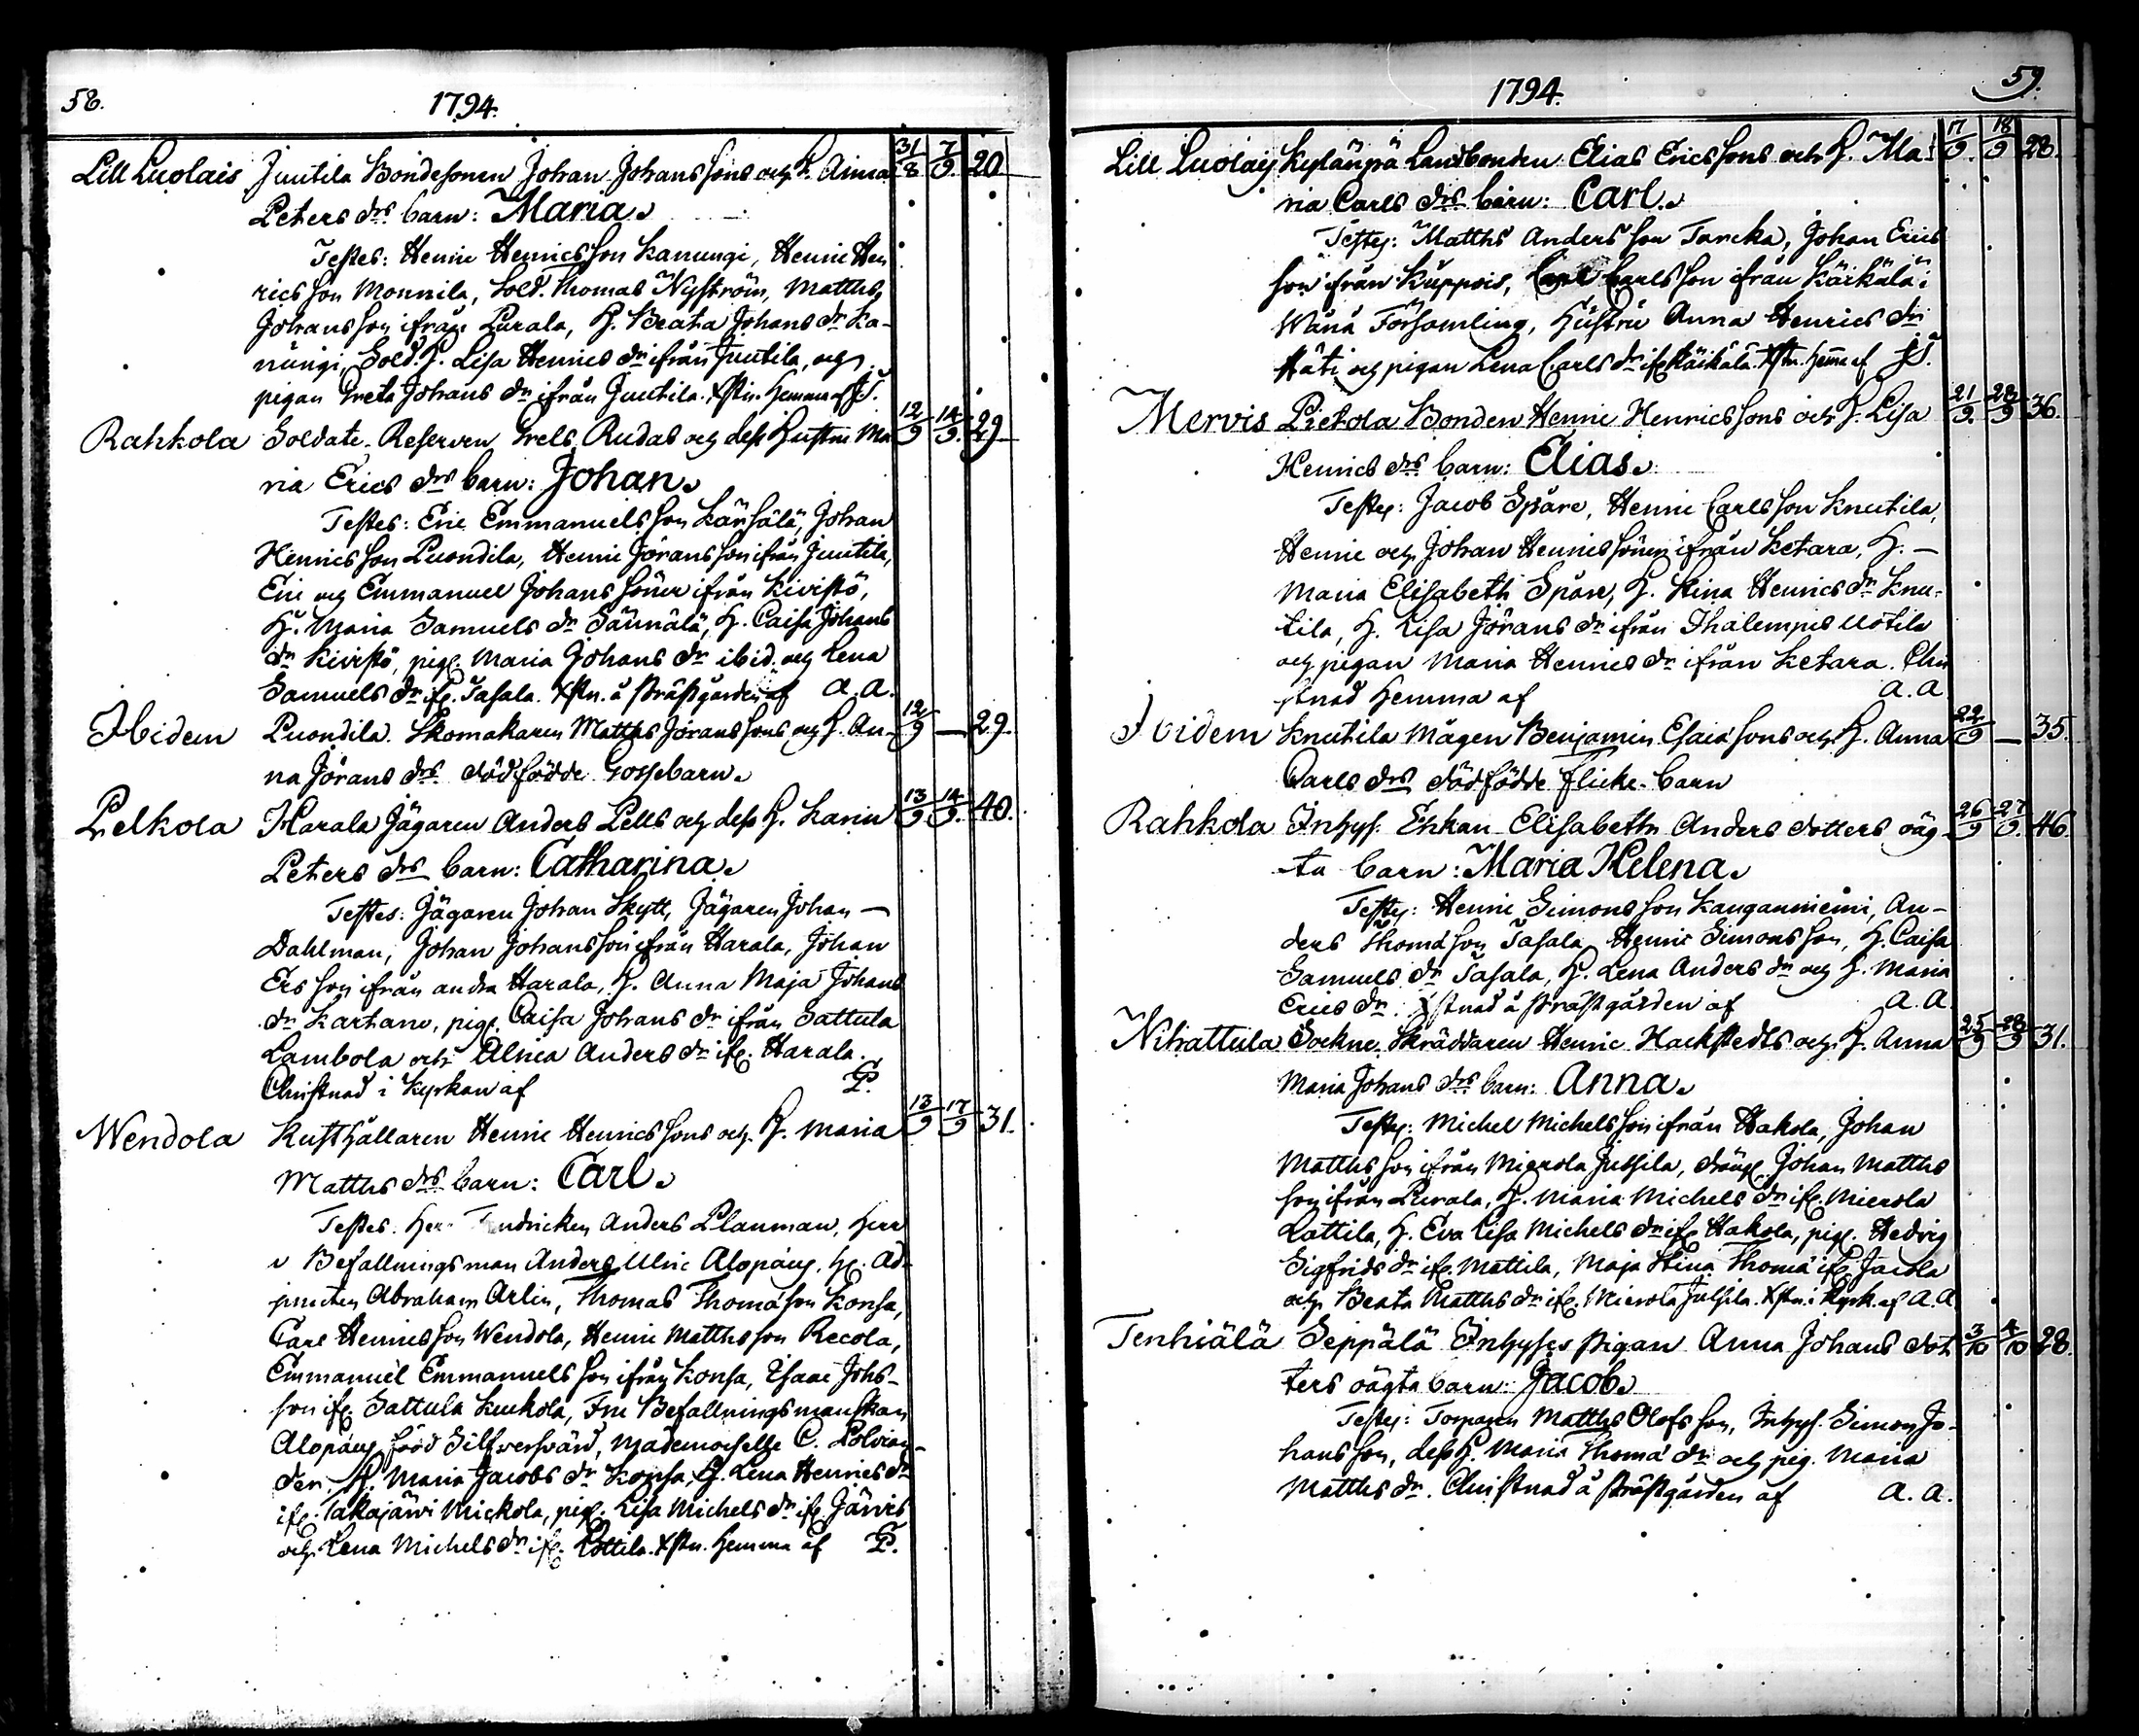 58. 1794.
Lill Luolais Juutila Bondesonen Johan Johans sons och H. Anna 31/8 7/9 20
Peters drs barn: Maria.
Testes: Henric Henrics son Kanungi, Henric Hen
rics son Monnila, Sold. Thomas Nyström, Matths
Johans son ifrån Purala, H. Beata Johans dr Ka-
nungi, Sold. H. Lisa Henrics dr ifrån Juutila, och
pigan Greta Johans dr ifrån Juutila. Xstn. hemma af J.T.
Rahkola Soldate-Reserven Grels Rudas och dess Hustru Ma 12/9 14/9 29
ria Erics drs barn: Johan.
Testes: Eric Emmanuels son Kärsälä, Johan
Henrics son Puondila, Henric Jörans son ifrån Juutila,
Eric och Emmanuel Johans söner ifrån Kivistö,
H. Maria Samuels dr Sännälä, H. Caisa Johans
dr Kivistö, pig. Maria Johans dr ibid. och Lena
Samuels dr ifr. Tasala. Xstn. å Prästgården af A.A.
Ibidem Puondila. Skomakaren Matths Jörans sons och H. An- 12/9 — 29.
na Jörans drs dödfödde Gossebarn.
Pelkola Harala Jägaren Anders Pells och dess H. Karin 13/9 14/9 40.
Peters drs barn: Catharina.
Testes: Jägaren Johan Skytt, Jägaren Johan —
Dahlman, Johan Johans son ifrån Harala, Johan
Ers son ifrån andra Harala, H. Anna Maja Johans
dr Kartano, pig. Caisa Johans dr ifrån Sattula
Lambola och Ulrica Anders dr ifr. Harala.
Christnad i Kyrkan af
Wendola Rusthållaren Henric Henrics sons och H. Maria 13/9 17/9 31.
Matths drs barn: Carl.
Testes. Herr Fendricken Anders Planman, Herr
Befallningsman Anders Ulric Alopæus, H. Ad-
juncten Abraham Arlin, Thomas Thomæ son Konsa,
Carl Henrics son Wendola, Henric Matths son Recola,
Emmanuel Emmanuels son ifrån Konsa, Isaac Johs-
son ifr. Sattula Kuckola, Fru Befallningsmanskan
Alopæus född Silfversvärd, Mademoiselle C. Polvian-
der, H. Maria Jacobs dr Konsa, H. Lena Henrics dr
ifr. Takajärvi Mickola, pig. Lisa Michels dr ifr. Järvis
och Lena Michels dr ifr. Lottila. Xstn. hemma af
1794. 59.
Lill Luolais Kylänpä Landbonden Elias Erics sons och H. Ma- 17/9 18/9 28.
ria Carls drs barn: Carl.
Testes: Matths Anders son Tarcka, Johan Erics
son ifrån Kuppois, Carl Carls son ifrån Käikälä i
Wånå Församling, Hustru Anna Henrics dr
Häti och pigan Lena Carls dr ifr. Käikälä. Xstn. hemma af J.T.
Mervis Pietola Bonden Henric Henrics sons och H. Lisa 21/9 28/9 36.
Henrics drs barn: Elias.
Testes: Jacob Spåre, Henric Carls son Knutila,
Henric och Johan Henrics söner ifrån Ketara, H. —
Maria Elisabeth Spåre, H. Stina Henrics dr Knu-
tila, H. Lisa Jörans dr ifrån Ihalempis Uotila
och pigan Maria Henrics dr ifrån Ketara. Chri
stnad hemma af A.A
Ibidem Knutila Mågen Benjamin Esaiæ sons och H. Anna 22/9 — 35.
Carls drs dödfödde flicke-barn
Rahkola Inhys. Enkan Elisabeth Anders dotters oäg- 26/9 27/9 46.
ta barn: Maria Helena.
Testes: Henric Simons son Kauganniemi, An-
ders Thomæ son Tasala, Henric Simons son, H. Caisa
Samuels dr Tasala, H. Lena Anders dr och H. Maria
Erics dr. Xstnad å Prästgården af A.A
Nihattula Sockne Skräddaren Henric Hackstedts och H. Anna 25/9 28/9 31.
Maria Johans drs barn: Anna.
Testes: Michel Michels son ifrån Hakola, Johan
Matths son ifrån Mierola Jutsila, dräng. Johan Matths
son ifrån Purala, H. Maria Michels dr ifr. Mierola
Lattila, H. Eva Lisa Michels dr ifr. Hakola, pig. Hedvig
Sigfrids dr ifr. Mattila, Maja Stina Thomæ ifr. Jacola
och Beata Matths dr ifr. Mierola Jutsila. Xstn. i Kyrk. af A.A
Tenhiälä Seppälä Inhyses Pigan Anna Johans dot 3/10 4/10 28.
ters oägta barn: Jacob.
Testes: Torparen Matths Olofs son, Inhys. Simon Jo-
hans son, dess H. Maria Thomæ dr och pig. Maria
Matths dr. Christnad å Prästgården af A.A.